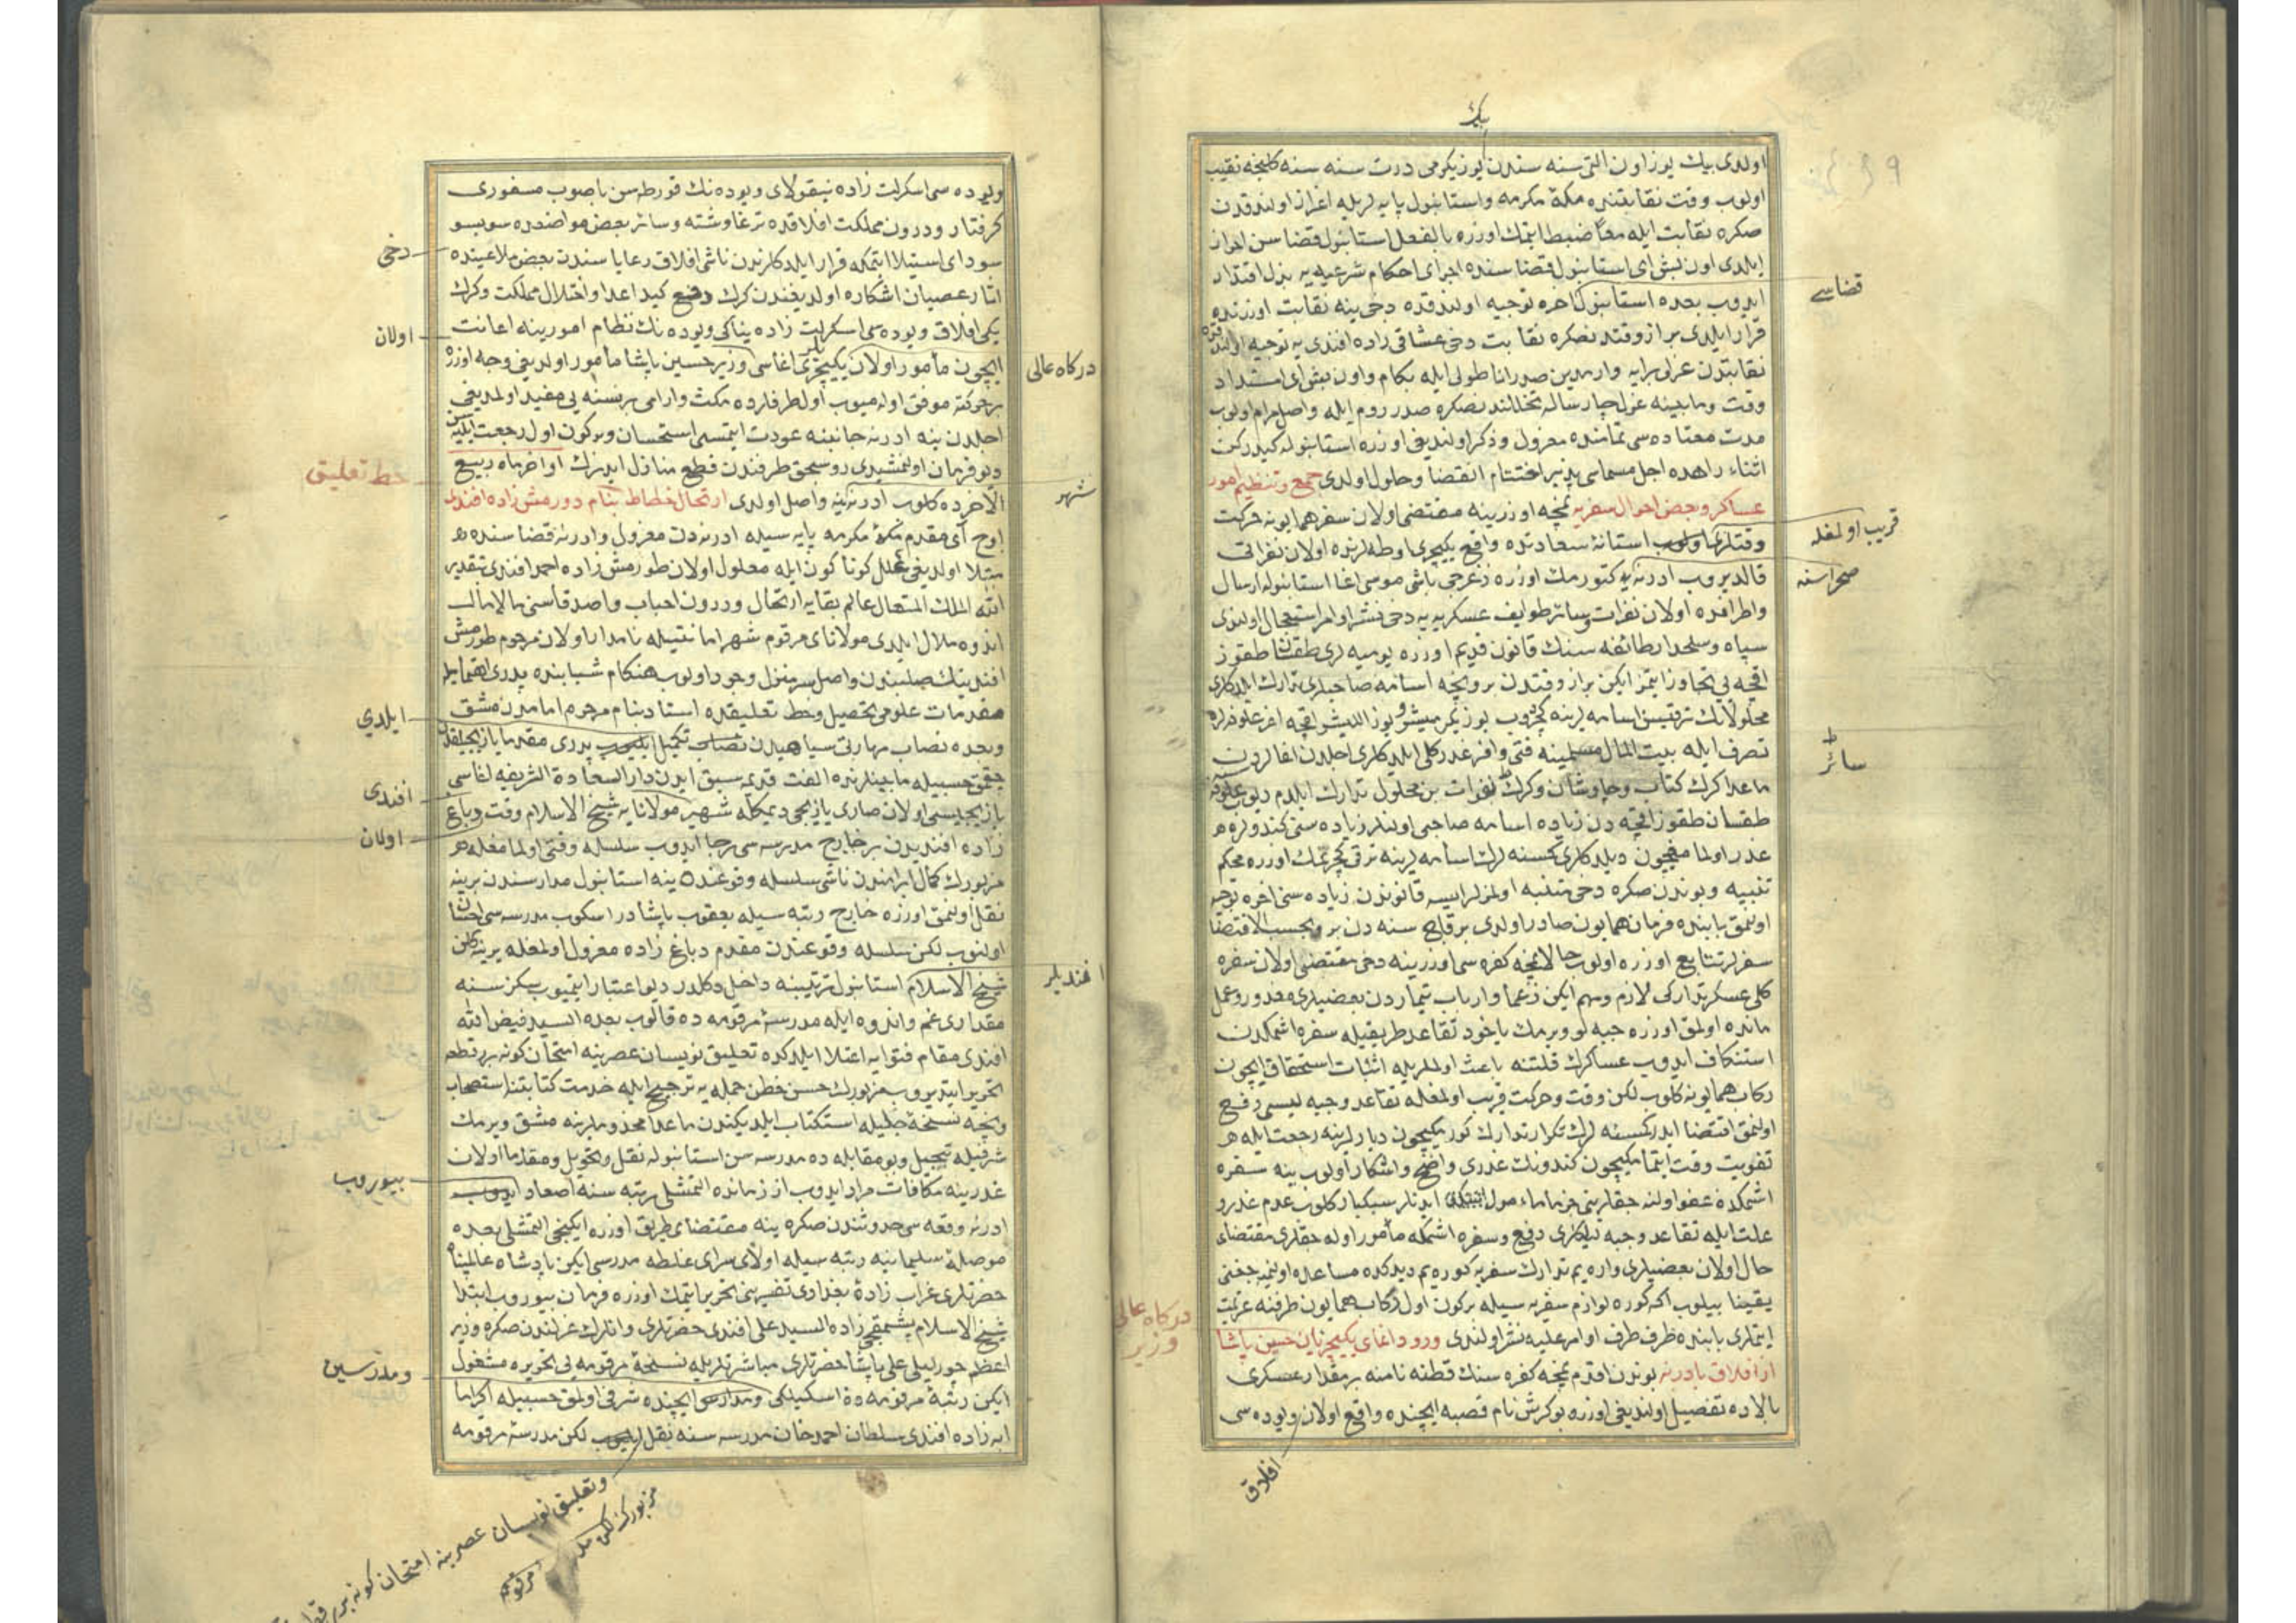 بك
اولدی بیك یوز اون التی سنه سندن یوز یكرمی درت سنه سنه كلنجه نقیب
اولوب وقت نقابتنده مكهٔ مكرمه واستانبول پایه لریله اعزاز اولندقدن
صكره نقابت ایله معًا ضبط ایتمك اوزره بالفعل استانبول قضاسن احراز
ایلدی اون بش ای استانبول قضاسنده اجرای احكام شرعیه یه بذل اقتدار
قضاسی
ایدوب بعده استانبول اخره توجیه اولندقده دخی ینه نقابت اوزرنده
قرار ایلدی بر از وقتدنصكره نقابت دخی عشاقی زاده افندی یه توجیه اولندقده
نقابتدن عزلی برایه وارمدین صدر اناطولی ایله بكام واون بش ای امتداد
وقت ومابینه عزل چار ساله تخللندنصكره صدر روم ایله واصل مرام اولوب
مدت معتاده سی تمامنده معزول وذكر اولندیغی اوزره استانبوله كیدركن
اثناء راهده اجل مسماسی پذیر اختتام انقضا وحلول اولدی جمع وتنظیم امور
عساكر وبعض احوال سفریه نمچه اوزرینه مقتضی اولان سفر همایونه حركت
قریب اولمغله
وقتلری اولوب استانهٔ سعادتده واقع یكیچری اوطه لرنده اولان نفراتی
صحراسنه
قالدیروب ادرنه یه كتورمك اوزره زغرجی باشی موسی اغا استانبوله ارسال
واطرافده اولان نفرات وسائر طوایف عسكریه یه دخی نشر اوامر استعجال اولندی
سپاه وسلحدار طائفه سنك قانون قدیم اوزره یومیه لری طقسان طقوز
اقچه یی تجاوز ایتمز ایكن بر از وقتدن برو نیجه اسامه صاحبلری تدارك ایلدكلری
تصرف ایله بیت المال مسلمینه فتی وافر غدر كلی ایلدكلری اجلدن اغالرندن
سائر
ماعدا كرك كتاب وچاوشان وكرك نفرات بن محلول تدارك ایلدم دیوب علوفه سنه
طقسان طقوز اقچه دن زیاده اسامه صاحبی اولنلر زیاده سنی كندولره
تنبیه وبوندن صكره دخی متنبه اولمزلر ایسه قانوندن زیاده سی اخره توجیه
اولنمق بابنده فرمان همایون صادر اولدی بر قاچ سنه دن برو بحسب الاقتضا
سفرلر تتابع اوزره اولوب حالا نمچه كفره سی اوزرینه دخی مقتضی اولان سفره
كلی عسكر تداركی لازم ومهم ایكن زعما وارباب تیماردن بعضیلری معذور وعمل
مانده اولمق اوزره جبه لو ویرمك یاخود تقاعد طریقیله سفره اشمكدن
استنكاف ایدوب عساكرك قلتنه باعث اولملریله اثبات استحقاق ایچون
ركاب همایونه كلوب لكن وقت وحركت قریب اولمغله تقاعد وجبه لیسی رفع
اولنمق اقتضا ایدر كمسنه لرك تكرار تدارك كورمكیچون دیارلرینه رجعت ایله
تفویت وقت ایتمامكیچون كندونك عذری واضح واشكار اولوب ینه سفره
علت ایله تقاعد وجبه لیلكلری دفع وسفره اشمكه مأمور اوله جقلری مقتضاء
حال اولان بعضیلری واره یم تدارك سفریه كوره یم دیدكده مساعده اولنمیه جغنی
یقینا بیلوب اكه كوره لوازم سفریه سیله بركون اول ركاب همایون طرفنه عزیمت
دركاه عالی
وزیر
ایتملری بابنده طرف طرف اوامر علیه نشر اولندی ورود اغای یكیچریان حسین پاشا
از افلاق بادرنه بوندن اقدم نمچه كفره سنك قطنه نامنه بر مقدار عسكری
بالاده تفصیل اولندیغی اوزره بوكرش نام قصبه ایچنده واقع اولان ویوده سی
افلاق
ویوده سی اسكرلت زاده نیقولای ویوده نك قورطه سن باصوب مسفوری
كرفتار ودرون مملكت افلاقده ترغاوشته وسائر بعض مواضعده سوبسو
دخی
سودای استیلا ایتمكه قرار ایلدكلرندن ناشی افلاق رعایاسندن بعض ملاعینده
اثار عصیان اشكاره اولدیغندن كرك دفع كید اعدا واختلال مملكت وكرك
اولان
یكی افلاق ویوده سی اسكرلت زاده یناكی ویوده نك نظام امورینه اعانت
دركاه عالی
ایچون مأمور اولان یكیچری اغاسی وزیر حسین پاشا مأمور اولدیغی وجه اوزره
بر حركته موفق اوله میوب اول طرفلرده مكث وارامی بر نسنه یی مفید اولمدیغی
اجلدن ینه ادرنه جانبنه عودت ایتمسی استحسان وبركون اول رجعت ایلیه سن
دیو فرمان اولنمشیدی روسجق طرفندن قطع منازل ایدرك اواخر ماه ربیع
خط تعلیق
شهر
الاخرده كلوب ادرنه یه واصل اولدی ارتحال خطاط بنام دورمش زاده افندی
اوج ای مقدم مكهٔ مكرمه پایه سیله ادرنه دن معزول وادرنه قضاسنده
مبتلا اولدیغی علل كوناكون ایله معلول اولان طورمش زاده احمد افندی بتقدیر
الله الملك المتعال عالم بقایه ارتحال ودرون احباب واصدقاسنی مالامال
اندوه ملال ایلدی مولانای مرقوم شهر امانتیله نامدار اولان مرحوم طورمش
افندینك صلبندن واصل سر منزل وجود اولوب هنكام شبابنده پدری اهتمامیله
مقدمات علومی تحصیل وخط تعلیقده استاد بنام مرحوم امامدن مشق
ایلدی
وبعده نصاب مهارتی سیاهیدن نصاب تكمیل ایلیوب پدری مقدما یازیجیلقدن
چقمق حسبیله مابینلرنده الفت قدیمه سبق ایدن دار السعادة الشریفه اغاسی
افندی
یازیجیسی اولان صاری یازیجی دیمكله شهیر مولانایه شیخ الاسلام وقت دباغ
اولان
زاده افندیدن بر خارج مدرسه سی رجا ایدوب سلسله وقتی اولمامغله
مزبورك كمال ابرامندن ناشی سلسله وقوعنده ینه استانبول مدارسندن برینه
نقل اولنمق اوزره خارج رتبه سیله یعقوب پاشا در اسكوب مدرسه سی احسان
اولنوب لكن سلسله وقوعندن مقدم دباغ زاده معزول اولمغله یرینه كلن
افندیلر
شیخ الاسلام استانبول ترتیبنه داخل دكلدر دیو اعتبار ایتمیوب سكز سنه
مقداری غم واندوه ایله مدرسهٔ مرقومه ده قالوب بعده السید فیض الله
افندی مقام فتوایه اعتلا ایلدكده تعلیق نویسان عصرینه امتحان كونه برر قطعه
تحریر ایتدیروب مزبورك حسن خطن جمله یه ترجیح ایله خدمت كتابتنه استصحاب
ونیجه نسخهٔ جلیله استكتاب ایلدیكندن ماعدا مخدوملرینه مشق ویرمك
شرفیله تبجیل وبو مقابله ده مدرسه سن استانبوله نقل وتحویل ومقدما اولان
بیوروب
غدرینه مكافات مراد ایدوب از زمانده التمشلی رتبه سنه اصعاد ایدوب
ادرنه وقعه سی حدوثندن صكره ینه مقتضای طریق اوزره ایكنجی التمشلی بعده
موصلهٔ سلیمانیه رتبه سیله اولای سرای غلطه مدرسی ایكن پادشاه عالمپناه
حضرتلری غراب زادهٔ بغدادی تفسیرینی تحریر ایتمك اوزره فرمان بیوروب ابتدا
شیخ الاسلام پشمقجی زاده السید علی افندی حضرتلری وانلرك عزلندن صكره وزیر
اعظم چورلیلی علی پاشا حضرتلری مباشرتلریله نسخهٔ مرقومه یی تحریره مشغول
ومدرسین
ایكن رتبهٔ مرقومه ده اسكیلكی ومدارس ایچنده شرفی اولمق حسبیله اكراما
ابه زاده افندی سلطان احمد خان مدرسه سنه نقل ایلیوب لكن مدرسهٔ مرقومه
وتعلیق نویسان عصرینه امتحان كونه برر